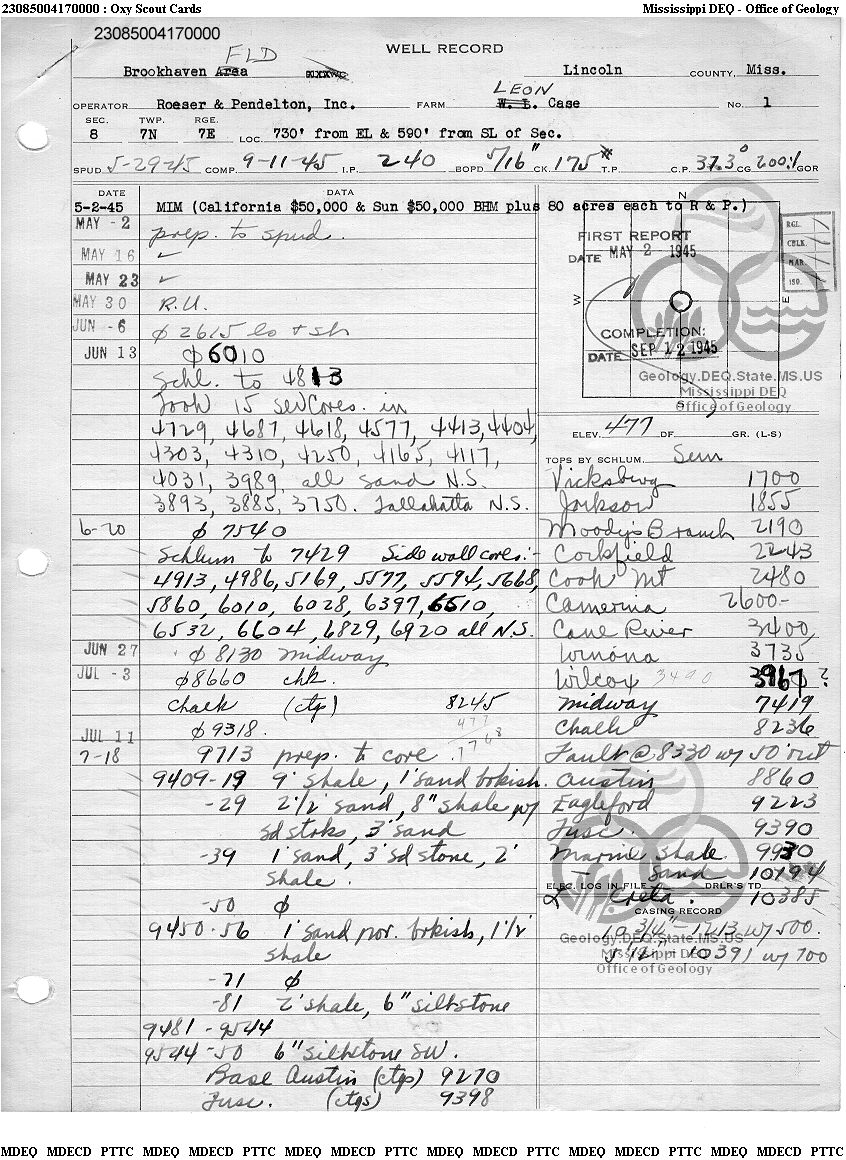 23085004170000 : Oxy Scout Cards Mississippi DEQ - Office of Geology
23085004170000
WELL RECORD
FLD
Brookhaven Area Lincoln COUNTY, Miss.
LEON
OPERATOR Roeser & Pendelton, Inc. FARM W. L. Case No. 1
SEC. TWP. RGE.
8 7N 7E LOC. 730' from EL & 590' from SL of Sec.
SPUD 5-29-45 COMP. 9-11-45 I.P. 240 BOPD 5/16" CK. 175# T.P. C.P. 37.3° CG 200:1 GOR
DATE DATA
5-2-45 MIM (California $50,000 & Sun $50,000 BHM plus 80 acres each to R & P.)
MAY - 2 prep. to spud.
MAY 16 ✓
MAY 23 ✓
MAY 30 R.U.
JUN - 6 φ 2615 lo & sh
JUN 13 φ 6010
Schl. to 4813
Took 15 sdwCores. in
4729, 4687, 4618, 4577, 4413, 4404,
4303, 4310, 4250, 4165, 4117,
4031, 3989, all sand N.S.
3893, 3885, 3750. Tallahatta N.S.
6-20 φ 7540
Schlum to 7429 Side wall cores:-
4913, 4986, 5169, 5577, 5594, 5668,
5860, 6010, 6028, 6397, 6510,
6532, 6604, 6829, 6920 all N.S.
JUN 27 φ 8130 midway
JUL - 3 φ 8660 chk.
Chalk (ctg) 8245
477
7768
JUL 11 φ 9318.
7-18 9713 prep. to core
9409-19 9' shale, 1' sand brkish.
-29 2 1/2' sand, 8" shale w/
sd stks, 3' sand
-39 1' sand, 3' sd stone, 2'
shale.
-50 φ
9450-56 1' sand por. brkish, 1 1/2'
shale
-71 φ
-81 2' shale, 6" siltstone
9481-9544
9544-50 6" siltstone SW.
Base Austin (ctgs) 9270
Tusc. (ctgs) 9398
N
W
E
S
FIRST REPORT
DATE MAY 2 1945
COMPLETION:
DATE SEP 12 1945
RGL.
CBLK.
MAR.
ISO.
Geology.DEQ.State.MS.US
Mississippi DEQ
Office of Geology
ELEV. 477 DF GR. (L-S)
TOPS BY SCHLUM. Sun
Vicksburg 1700
Jackson 1855
Moody's Branch 2190
Cockfield 2243
Cook Mt 2480
Camerina 2600-
Cane River 3400
Winona 3735
Wilcox 3490 3967 ?
Midway 7419
Chalk 8236
Fault @ 8330 w/ 50' out
Austin 8860
Eagleford 9223
Tusc. 9390
Marine Shale 9930
- Sand 10194
ELEC. LOG IN FILE DRLR'S TD
L Creta. - 10385
CASING RECORD
10 3/4" - 1213 w/ 500.
5 1/2" 10391 w/ 700
Geology.DEQ.State.MS.US
Mississippi DEQ
Office of Geology
MDEQ MDECD PTTC MDEQ MDECD PTTC MDEQ MDECD PTTC MDEQ MDECD PTTC MDEQ MDECD PTTC MDEQ MDECD PTTC